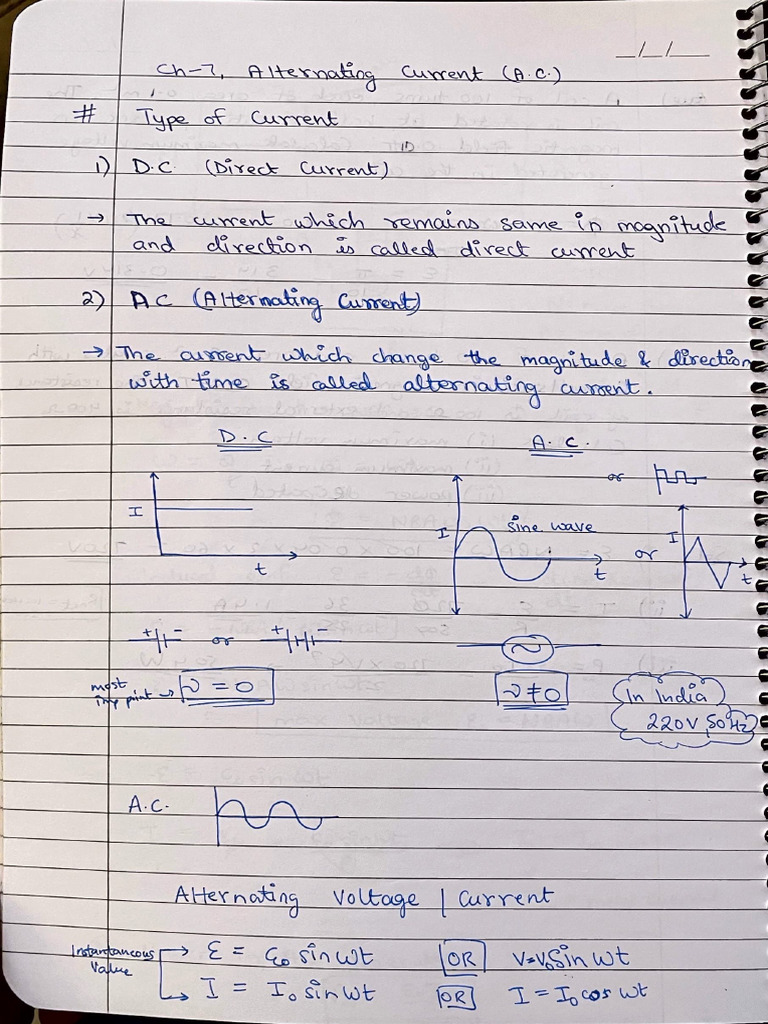 _/_/_
Ch-7, Alternating Current (A.C.)
# Type of Current
1) D.C. (Direct Current)
→ The current which remains same in magnitude
and direction is called direct current
2) AC (Alternating Current)
→ The current which change the magnitude & direction
with time is called alternating current.
D.C A.C.
or
I t
I sine wave t or I t
+ - or + -
most imp point → ν = 0
ν ≠ 0
In India
220V, 50Hz
A.C.
Alternating Voltage / Current
Instantaneous Value → ε = ε₀ sin wt OR V=V₀Sin wt
→ I = I₀ sin wt OR I = I₀ cos wt